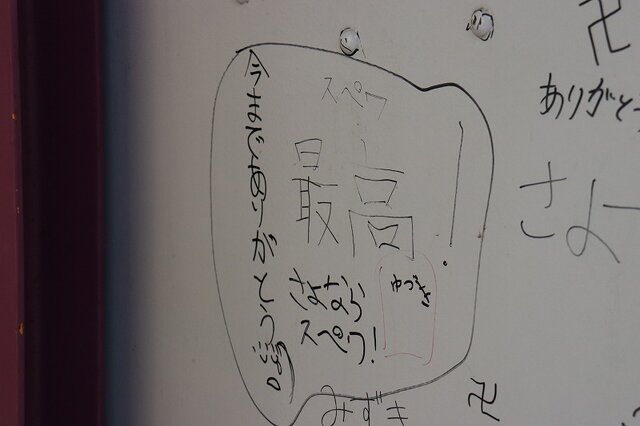 卍
ありがと
さよ
スペワ
最高!
今までありがとう
さよなら
スペワ!
ゆづき
みずき
卍